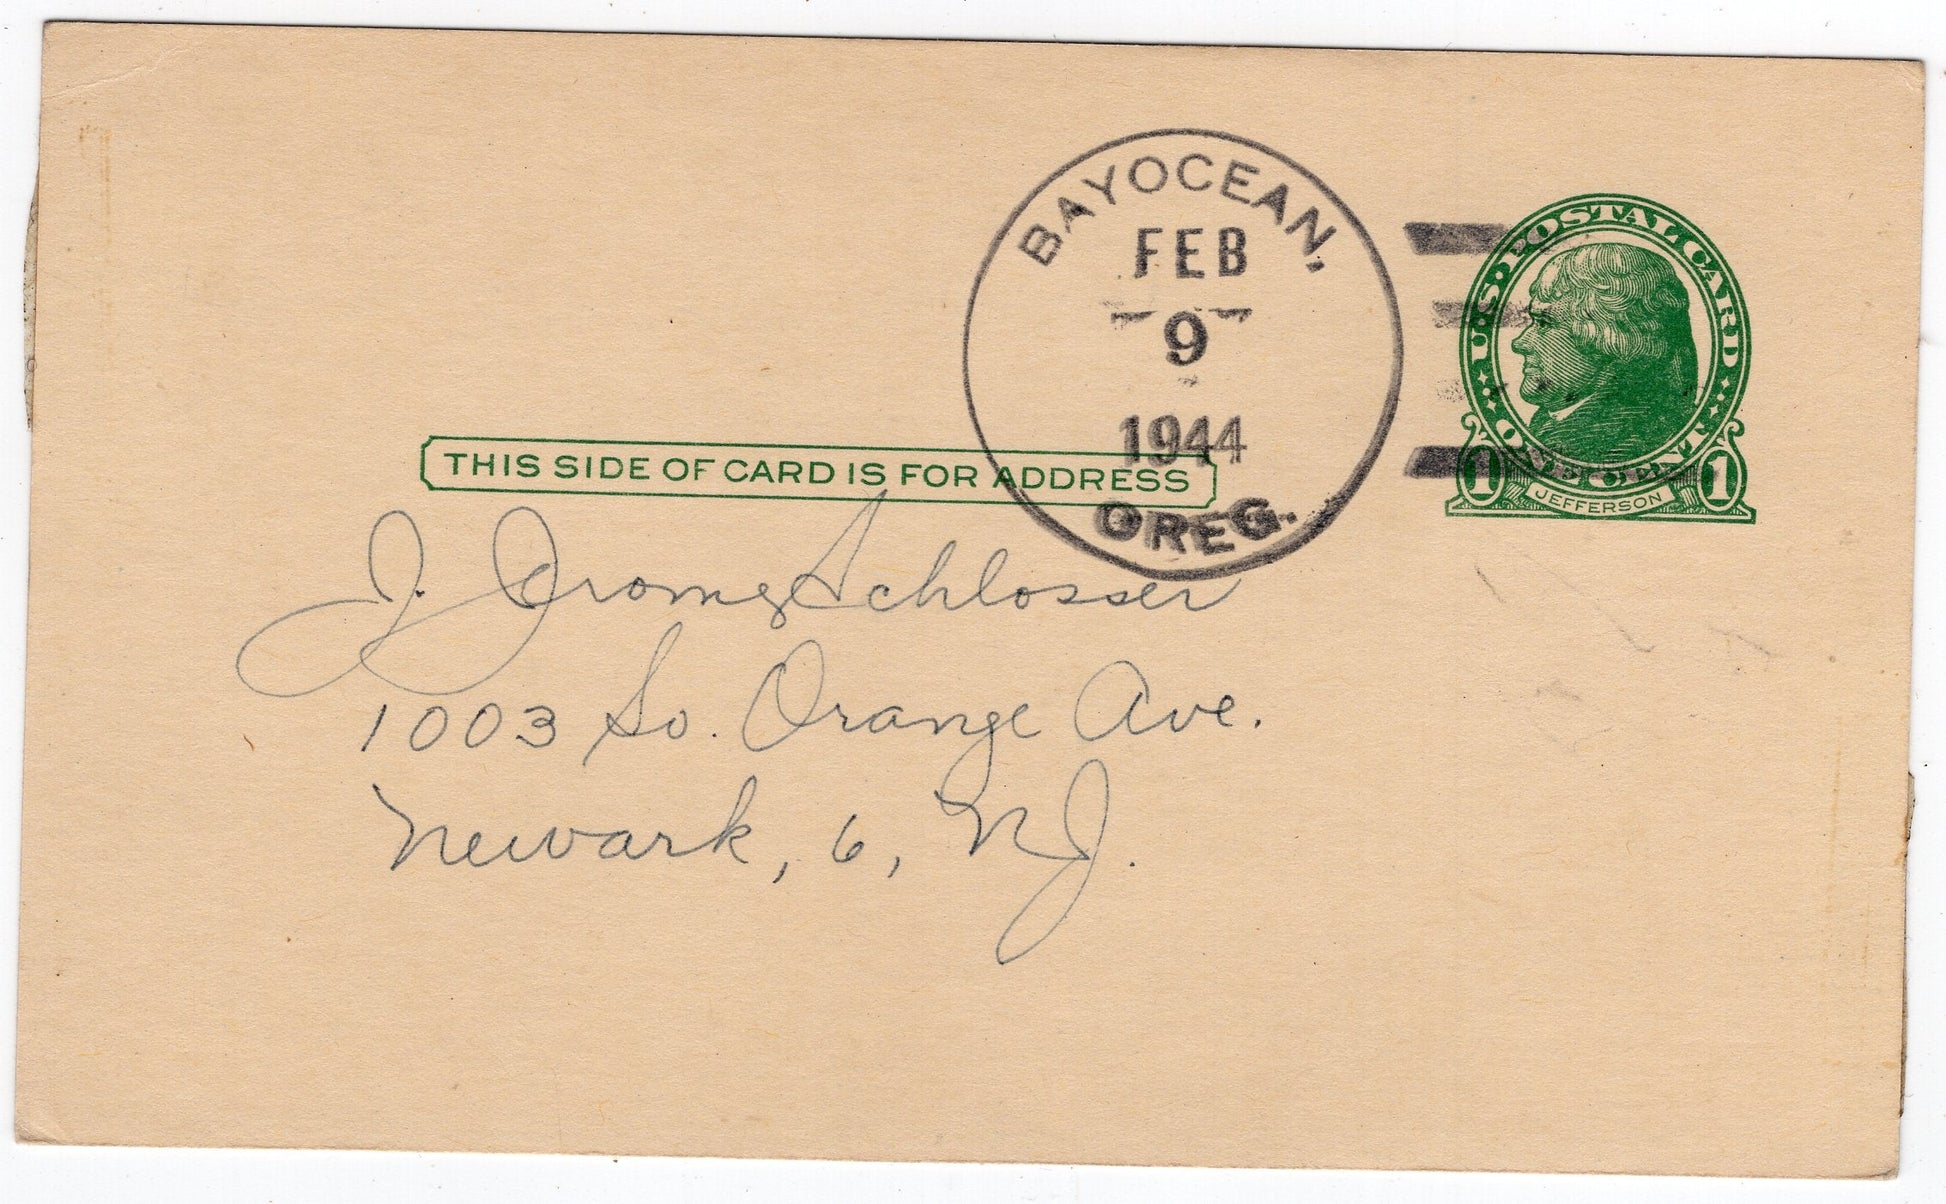 BAYOCEAN,
FEB
9
1944
OREG.
U.S. POSTAL CARD
ONE CENT
1 JEFFERSON 1
THIS SIDE OF CARD IS FOR ADDRESS
J. Jrome Schlosser
1003 So. Orange Ave.
Newark, 6, NJ.